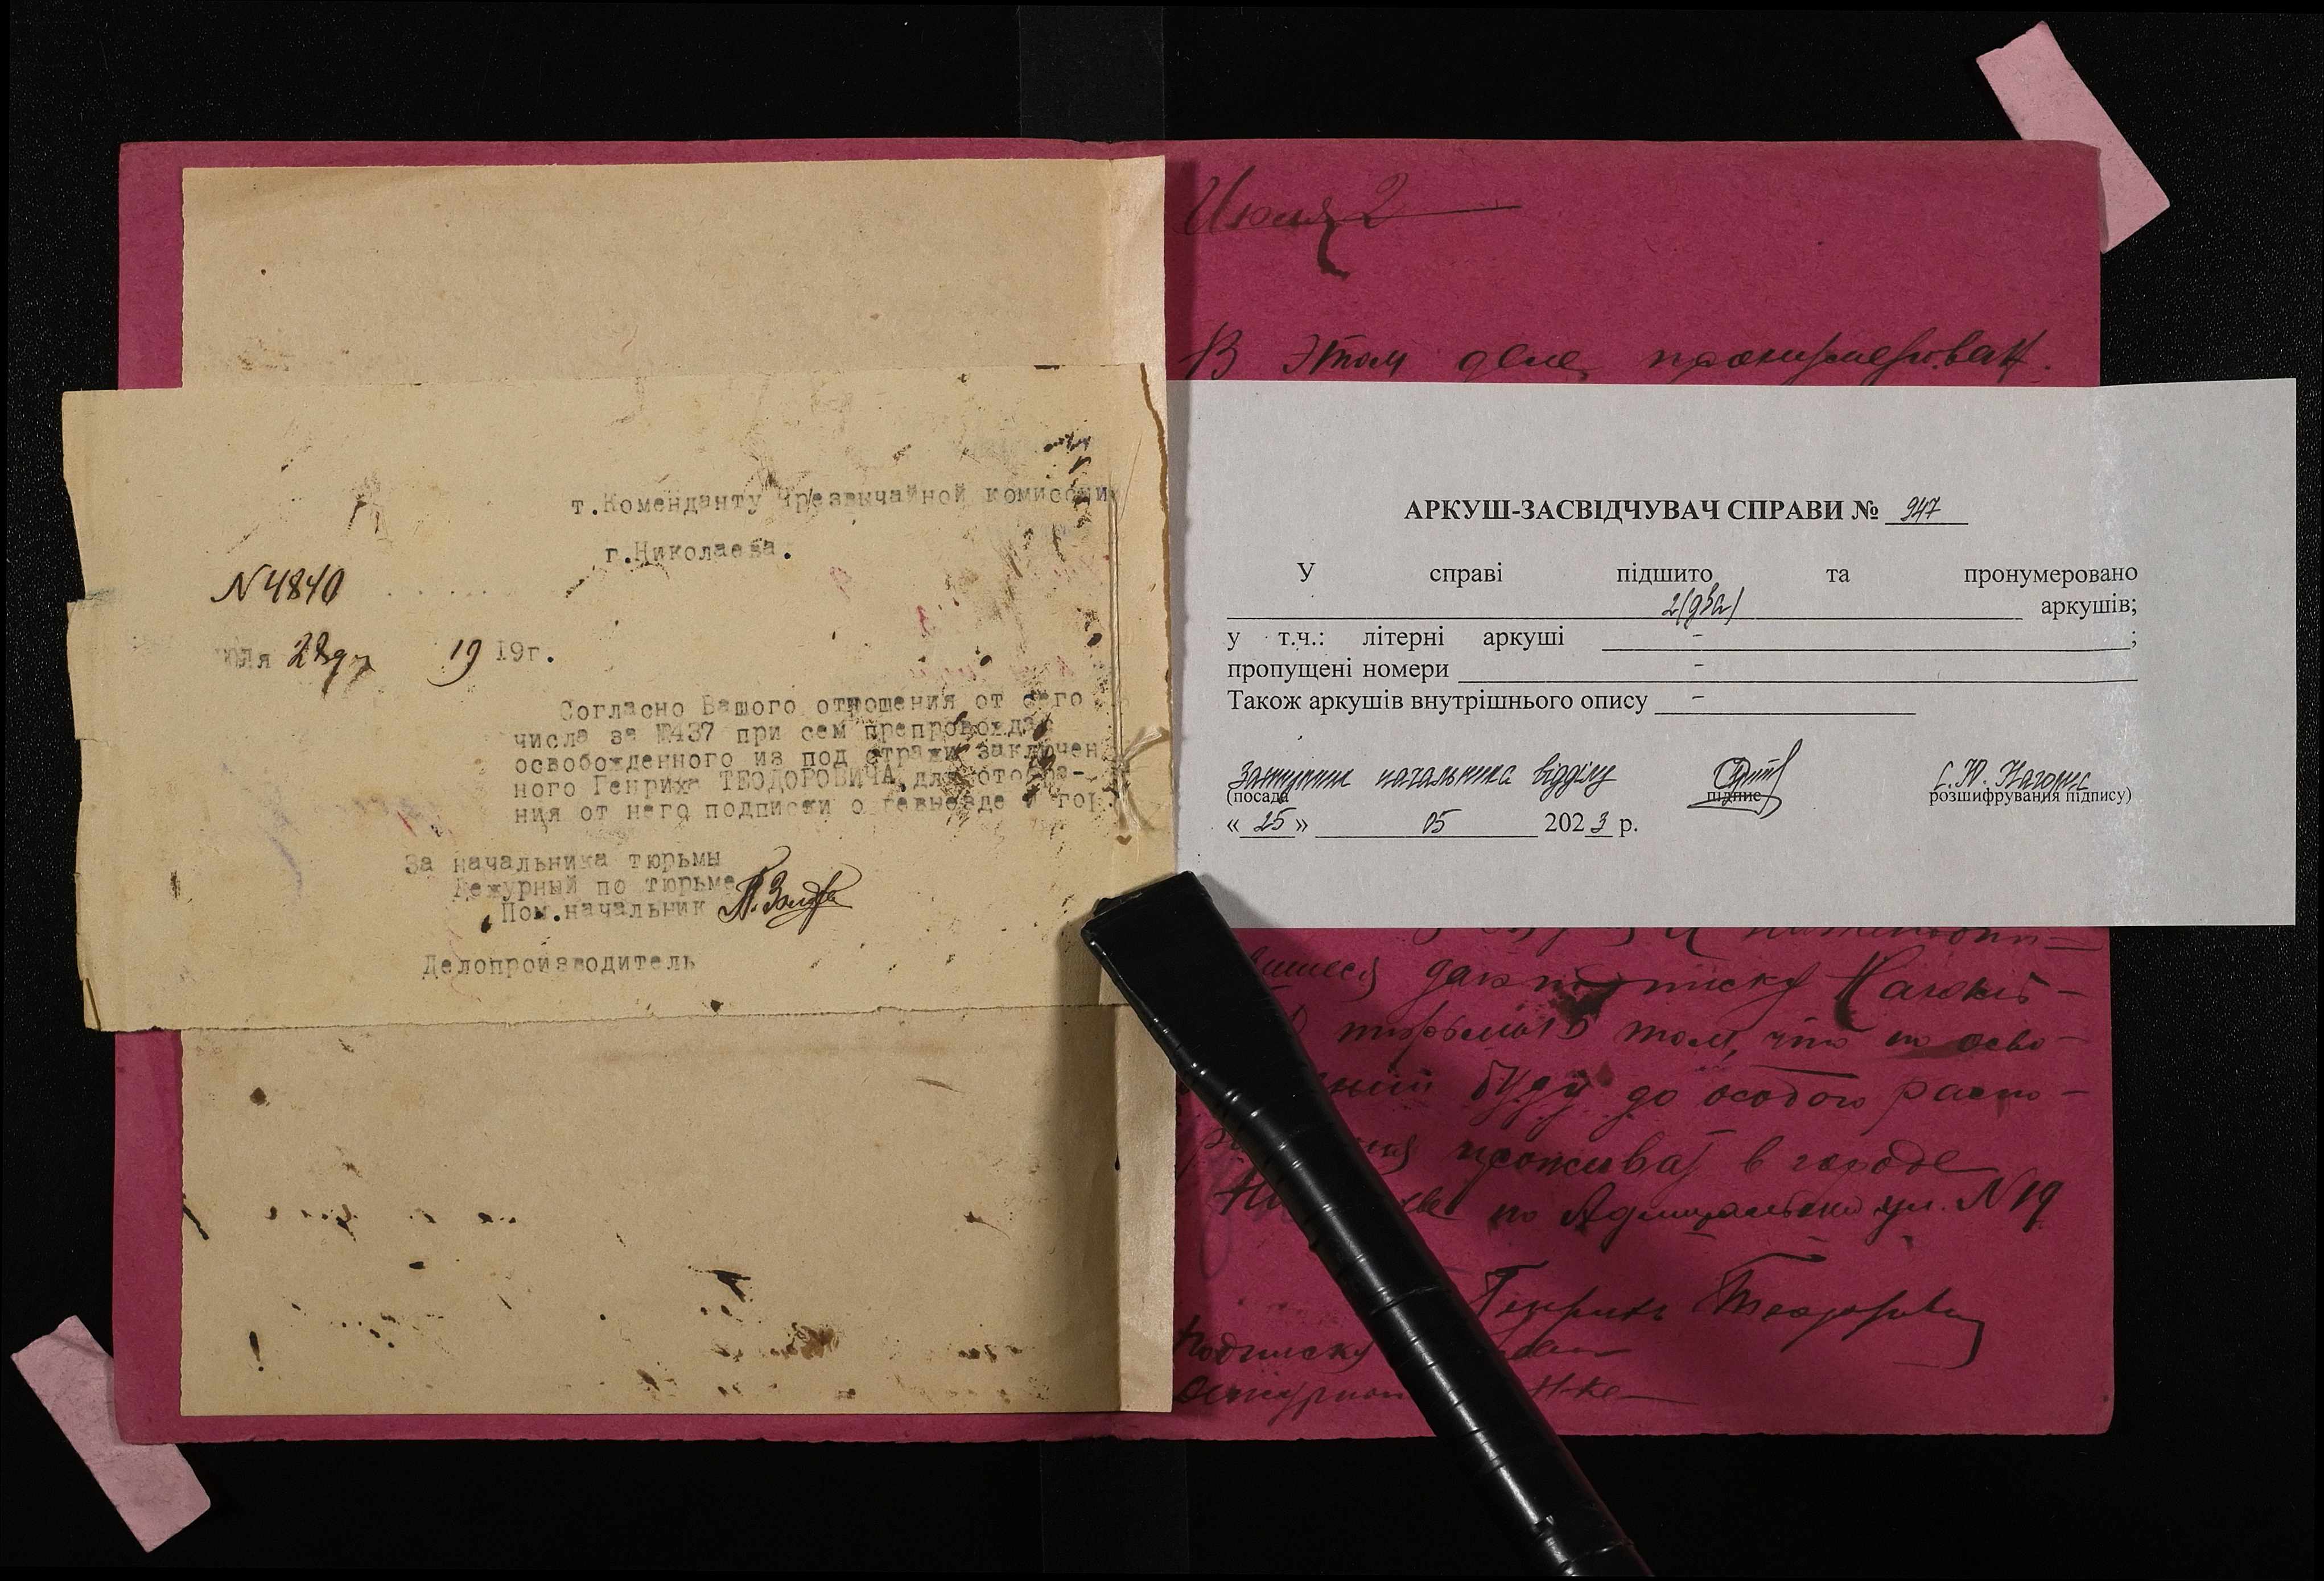 т.Коменданту Чрезвычайной комиссии
г.Николаева.
N 4840
юля 28 дня 1919г.
Согласно Вашого отношения от сего
числа за №437 при сем препровожда
освобожденного из под стражи заключен
ного Генриха ТЕОДОРОВИЧА для отобра-
ния от него подписки о невыезде и гор.
За начальника тюрьмы
Дежурный по тюрьме
Пом.начальник
Делопроизводитель
Июля 2
В этом деле пронумерован.
АРКУШ-ЗАСВІДЧУВАЧ СПРАВИ № 947
У справі підшито та пронумеровано
2 (два) аркушів;
у т.ч.: літерні аркуші - ;
пропущені номери -
Також аркушів внутрішнього опису -
Заступник начальника відділу
(посада підпис розшифрування підпису)
« 25 » 05 2023 р.
даю подписку
тюрьмы в том, что
буду до особого распо-
проживать в городе
по Адмиральской ул. N 19
Генрих Теодорович
Подписку